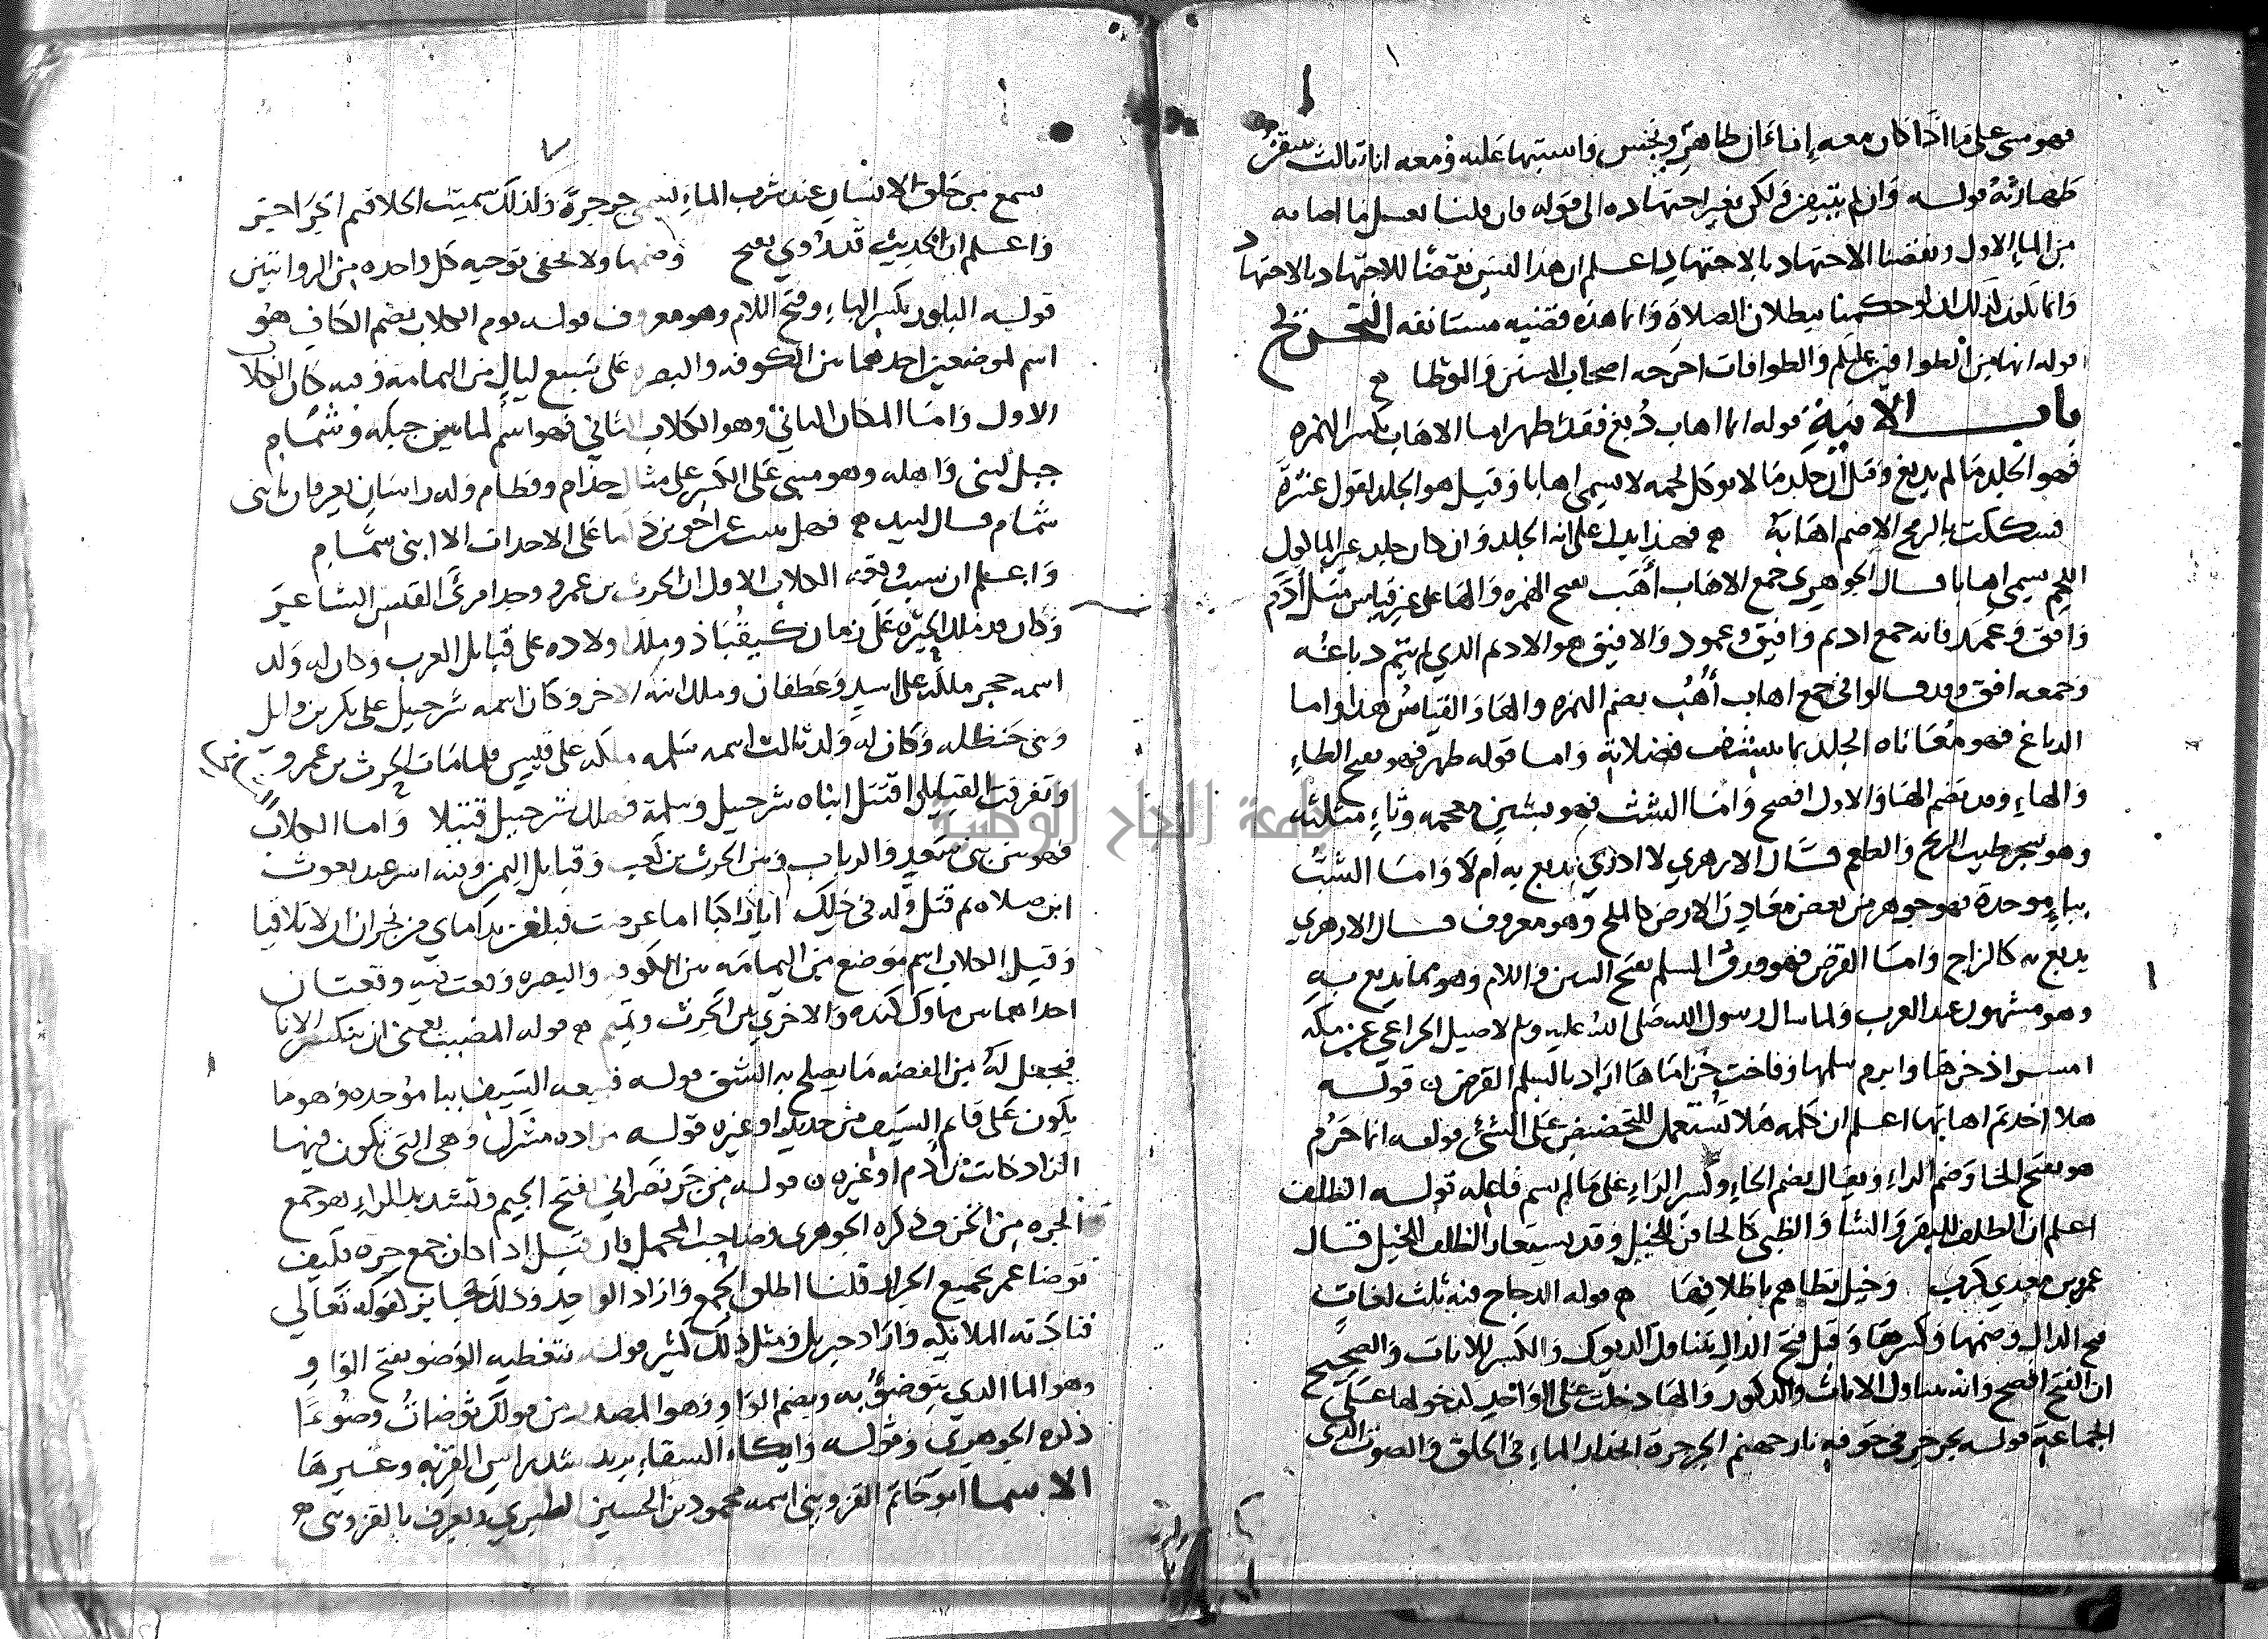 فهو مبني على ما اذا كان معه إناءان طاهر ونجس واشتبها عليه ومعه اناء ثالث تيقن
طهارته قوله وان لم يتيقن ولكن تغير اجتهاده الى قوله فان قلنا يغسل ما اصابه
من الماء الاول ونقضنا الاجتهاد بالاجتهاد اعلم ان هذا ليس نقضا للاجتهاد بالاجتهاد
وانما يكون لذلك ان لو حكمنا ببطلان الصلاة وانما هذه قضيه مستانفه التخريج
قوله انها من الطوافين عليكم والطوافات اخرجه اصحاب السنن والموطا
باب الآنية قوله ايما اهاب دُبغ فقد طهر اما الاهاب بكسر الهمزه
فهو الجلد ما لم يدبغ وقيل ان جلد ما لا يوكل لحمه لا يسمى اهابا وقيل هو الجلد لقول عنترة
فشككت بالرمح الاصم اهابه فهذا يدل على انه الجلد وان كان جلد غير الماكول
اللحم يسمى اهابا قال الجوهري جمع الاهاب أَهَب بفتح الهمزه والها على غير قياس مثل أَدَم
وافق وعمد فانه جمع اديم وافيق وعمود والافيق هو الاديم الذي لم يتم دباغته
وجمعه افق وقد قالوا في جمع اهاب أُهُب بضم الهمزه والهاء والقياس هذا واما
الدباغ فهو معاناه الجلد بما ينشف فضلاته واما قوله طهر فهو بفتح الطاء
والهاء وقد تضم الهاء والاول افصح واما الشث فهو بشين معجمه وثاء مثلثه
وهو شجر طيب الريح والطعم قال الازهري لا ادري يدبغ به ام لا واما الشب
بباء موحدة فهو جوهر من بعض معادن الارض كالملح وهو معروف قال الازهري
يدبغ به كالزاج واما القرض فهو ورق السلم بفتح السين واللام وهو مما يدبغ به
وهو مشهور عند العرب ولما سال رسول الله صلى الله عليه وسلم لاصيل الخزاعي عن مكه
امشر اذخرها وابرم سلمها وفاخت خزاماها اراد بالسلم القرض قوله
هلا اخذتم اهابها اعلم ان كلمه هلا تستعمل للتحضيض على الشئ قوله انما حَرُم
هو بفتح الحا وضم الراء ويقال بضم الحاء وكسر الراء على ما لم يسم فاعله قوله الظلف
اعلم ان الظلف للبقر والشا والظبي كالحافر للخيل وقد يستعار الظلف للخيل قال
عمرو بن معدي كرب وخيل تطاهم باظلافها قوله الدجاج فيه ثلث لغات
فتح الدال وضمها وكسرها وقيل فتح الدال يتناول الديوك والكسر للاناث والصحيح
ان الفتح افصح وانه يتناول الاناث والذكور والهاء دخلت على الواحد لدخولها على
الجماعة قوله يجرجر في جوفه نار جهنم الجرجرة انحدار الماء في الحلق والصوت الذي
يسمع من حلق الانسان عند شرب الماء يسمى جرجرة ولذلك سميت الحلاقم
واعلم ان الحديث قد روي بفتح وضمها ولا يخفى توجيه كل واحده من الروايتين
قوله البلور بكسر الباء وفتح اللام وهو معروف قوله يوم الكلاب بضم الكاف هو
اسم لموضعين احدهما بين الكوفه والبصره على سبع ليال من اليمامه وفيه كان الكلاب
الاول واما المكان الثاني وهو الكلاب الثاني فهو اسم لما بين جبله وشمام
جبل لبني واهله وهو مبني على الكسر على مثال حذام وقطام وله راسان يعرفان بابني
شمام قال لبيد فهل نبئت عن اخوين داما على الاحداث الا ابني شمام
واعلم ان سبب وقعه الكلاب الاول ان الحرث بن عمرو وجد امرئ القيس الشاعر
وكان قد ملك الحيرة على زمان كيقُبَاذ وملك اولاده على قبايل العرب وكان له ولد
اسمه حجر ملكه على اسد وغطفان وملك ابنه الاخر وكان اسمه شرحبيل على بكر بن وايل
وبني حنظله وكان له ولد ثالث اسمه سلمه ملكه على قيس فلما مات الحرث بن عمرو
وتفرقت القبايل اقتتل ابناه شرحبيل وسلمة فهلك شرحبيل قتيلا واما الكلاب
فهو بين بني سعد والرباب وبين الحرث بن كعب وقبايل اليمن وفيه اسر عبد يغوث
ابن صلاه ثم قتل وله في ذلك ايا راكبا اما عرضت فبلغن نداماي من نجران ان لا تلاقيا
وقيل الكلاب اسم موضع من اليمامه بين الكوفه والبصره وقعت فيه وقعتان
احداهما بين ملوك كنده والاخري بين الحرث وتميم قوله المضبب يعني ان ينكسر الانا
فيجعل له من الفضه ما يصلح به الشق قوله قبيعه السيف ببا موحده وهو ما
يكون على قايم السيف من حديد او غيره قوله مزاده مشرك وهي التي تكون فيها
الزاد كانت من ادم او غيره قوله من جر نصراني فتح الجيم وتشديد الراء هو جمع
الجره من الخزف ذكره الجوهري وصاحب المجمل فان قيل اذا كان جمع جره فكيف
توضا عمر بجميع الجرار قلنا اطلق الجمع واراد الواحد وذلك جايز لقوله تعالي
فنادته الملائكه واراد جبريل ومثل ذلك كثير قوله تغطيه الوضو بفتح الواو
وهو الما الذي يتوضؤ به وبضم الواو وهو المصدر من قولك توضات وضوءا
ذكره الجوهري وقوله وايكاء السقاء يريد شد راس القربه وغيرها
الاسما ابو حاتم القزويني اسمه محمود بن الحسين الطبري ويعرف بالقزويني
جامعة النجاح الوطنية